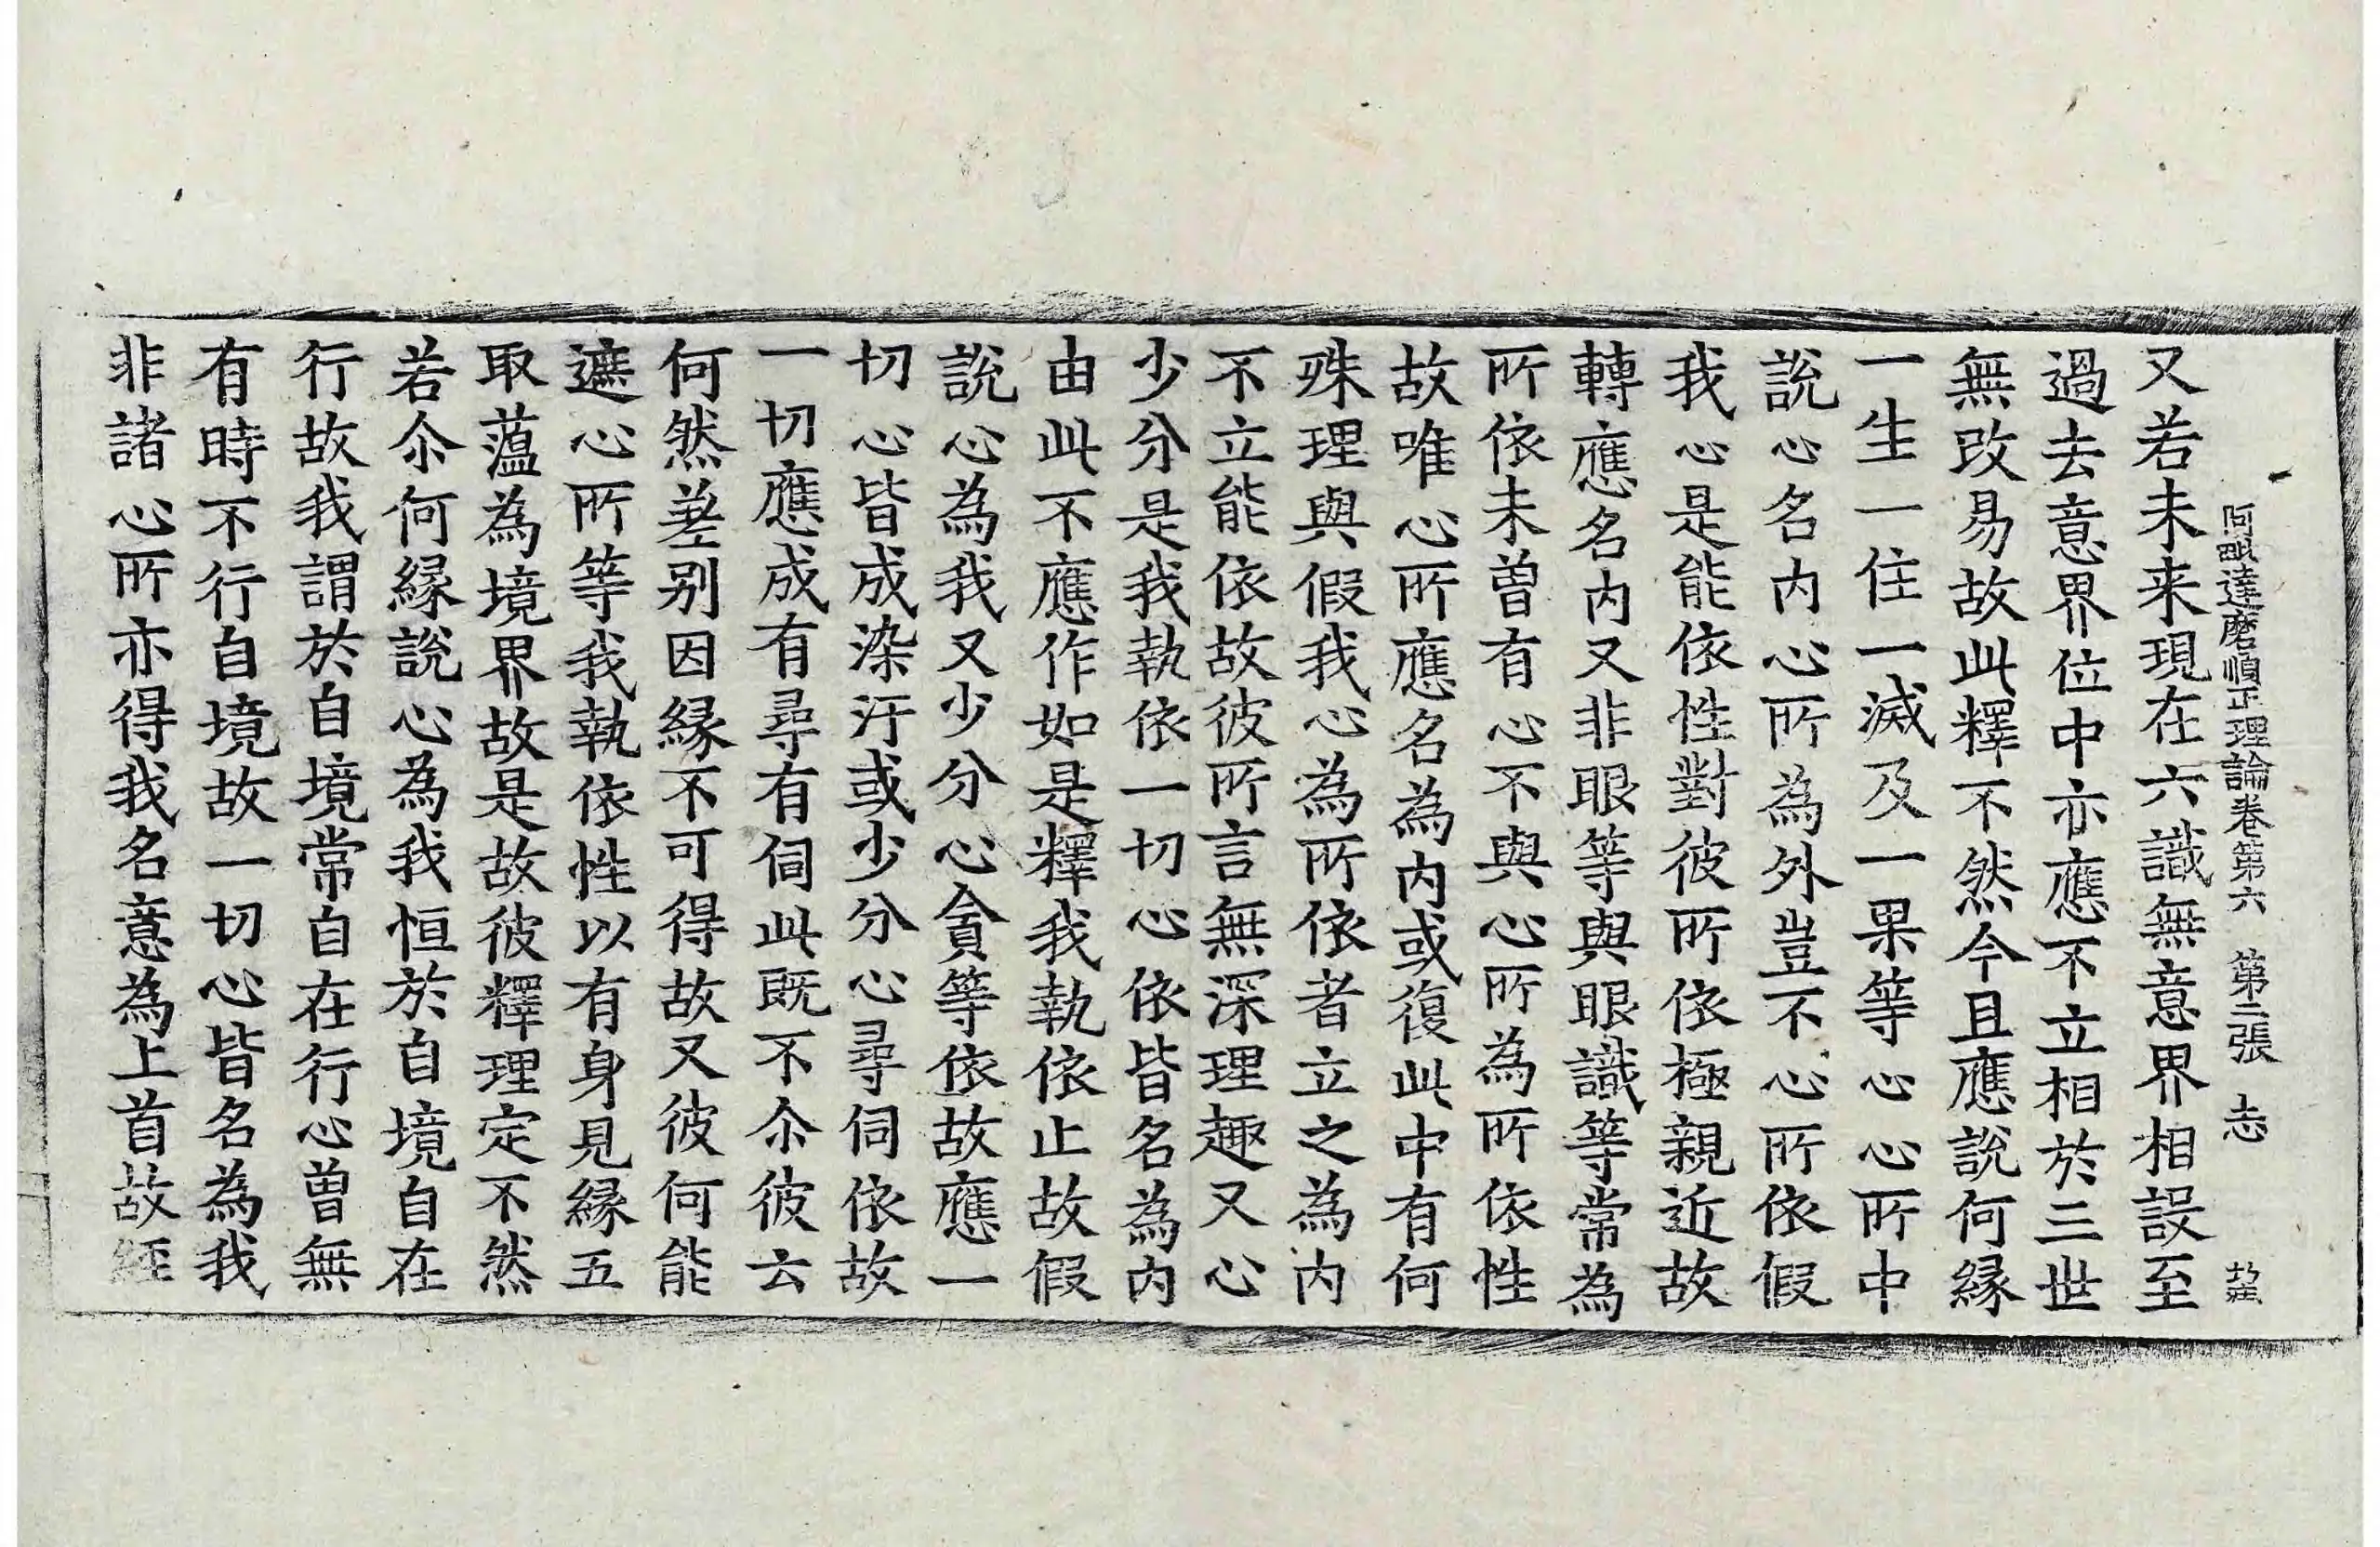 阿毗達磨順正理論卷第六　第三張　志
又若未来現在六識無意界相設至
過去意界位中亦應不立相於三世
無改易故此釋不然今且應說何縁
一生一住一滅及一果等心心所中
說心名内心所為外豈不心所依假
我心是能依性對彼所依極親近故
轉應名内又非眼等與眼識等常為
所依未曽有心不與心所為所依性
故唯心所應名為内或復此中有何
殊理與假我心為所依者立之為内
不立能依故彼所言無深理趣又心
少分是我執依一切心依皆名為内
由此不應作如是釋我執依止故假
說心為我又少分心貪等依故應一
切心皆成染汙或少分心尋伺依故
一切應成有尋有伺此既不尒彼云
何然差别因縁不可得故又彼何能
遮心所等我執依性以有身見縁五
取蕴為境界故是故彼釋理定不然
若尒何縁說心為我恒於自境自在
行故我謂於自境常自在行心曽無
有時不行自境故一切心皆名為我
非諸心所亦得我名意為上首故經